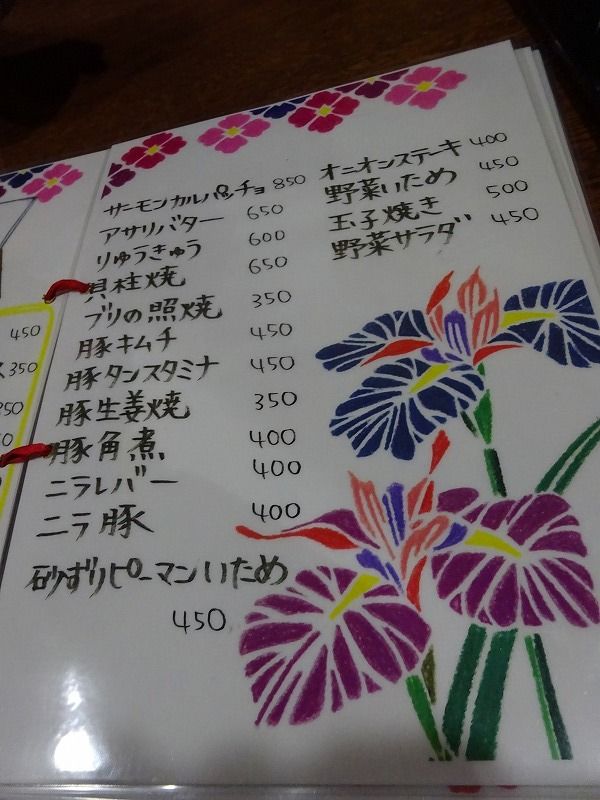 サーモンカルパッチョ 850
アサリバター 650
りゅうきゅう 600
貝柱焼 650
ブリの照焼 350
豚キムチ 450
豚タンスタミナ 450
豚生姜焼 350
豚角煮 400
ニラレバー 400
ニラ豚 400
砂ずりピーマンいため
450
オニオンステーキ 400
野菜いため 450
玉子焼き 500
野菜サラダ 450
450
ス350